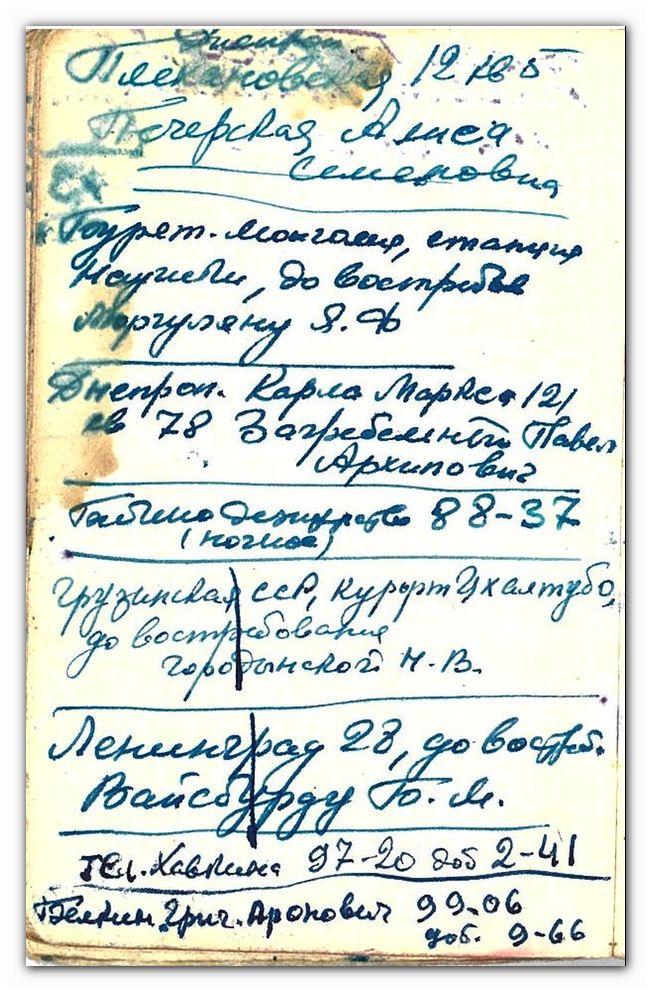 Плехановская 12 кв 5
Печерская Алиса
Семеновна
Бурят. Монголия, станция
Наушки, до востребов
Моргуляну Я. Ф
Днепроп. Карла Маркса 121
кв 78 Загребельный Павел
Архипович
дежурство 88-37
(ночное)
Грузинская ССР, курорт Цхалтубо,
до востребования
Городынской Н. В.
Ленинград 28, до востреб.
Вайсбурду Б. М.
тел. Хавкина 97-20 доб 2-41
Белкин Григ. Аронович 99-06
доб. 9-66